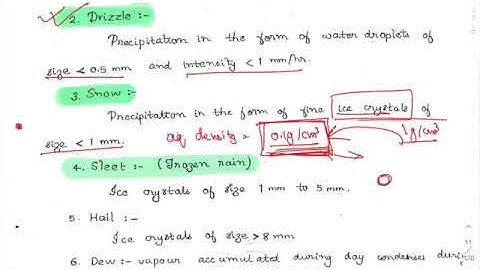 2. Drizzle :-
Precipitation in the form of water droplets of
size < 0.5 mm and intensity < 1 mm/hr.
3. Snow :-
Precipitation in the form of fine ice crystals of
size < 1 mm. avg density = 0.1g/cm³ 1g/cm³
4. Sleet :- (Frozen rain)
Ice crystals of size 1 mm to 5 mm.
5. Hail :-
Ice crystals of size > 8 mm
6. Dew :- vapour accumulatd during day condenses during